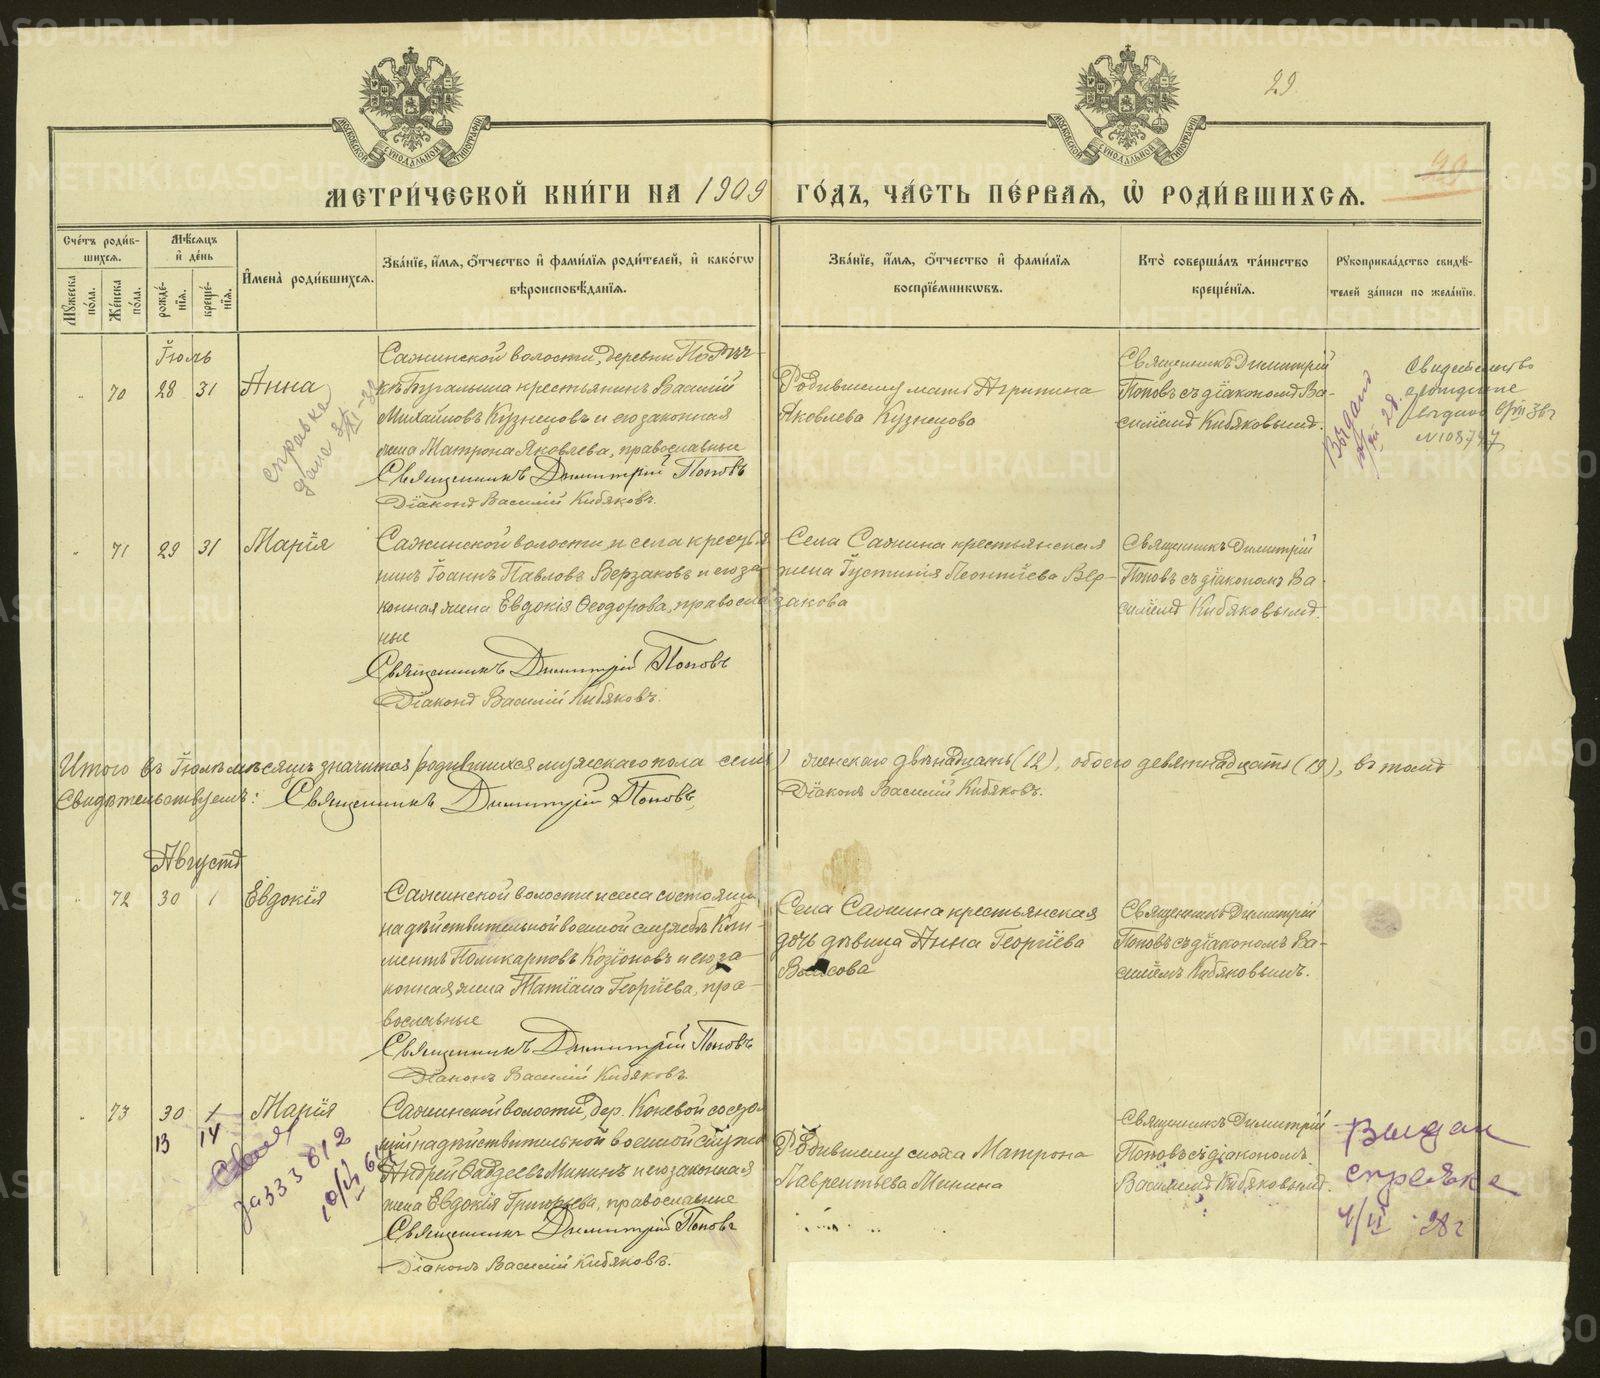 29
29
МЕТРИ́ЧЕСКОЙ КНИ́ГИ НА 1909 ГО́ДЪ, ЧА́СТЬ ПЕ́РВАЯ, Ѡ҆ РОДИ́ВШИХСѦ.
Сче́тъ роди́вшихсѧ.
Мѣ́сѧцъ и҆ де́нь
Мꙋ́жеска по́ла.
Же́нска по́ла.
рожде́нїѧ.
креще́нїѧ.
И҆мена̀ роди́вшихсѧ.
Зва́нїе, и҆́мѧ, ѻ҆́тчество и҆ фами́лїѧ роди́телей, и҆ како́гѡ
вѣроисповѣ́данїѧ.
Зва́нїе, и҆́мѧ, ѻ҆́тчество и҆ фами́лїѧ
воспрїе́мникѡвъ.
Кто̀ соверша́лъ та́инство
креще́нїѧ.
Рꙋкоприкла́дство свидѣ́-
телей за́писи по жела́нїю.
Іюль
70 28 31 Анна
Сажинской волости, деревни Подъ-
крестьянинъ Василій
Михайловъ Кузнецовъ и его законная
жена Матрона Яковлева, православные
Священникъ Димитрій Поповъ
Діаконъ Василій Кибяковъ.
Родившему мать Агрипина
Яковлева Кузнецова
Священникъ Димитрій
Поповъ съ діакономъ Ва-
силіемъ Кибяковымъ.
справка
дана
Выдано
28.
Свидетельство
о рождение
выдано
N108747
71 29 31 Марія
Сажинской волости и села крестья
нинъ Іоаннъ Павловъ Верзаковъ и его за-
конная жена Евдокія Ѳеодорова, правосла
ные
Священникъ Димитрій Поповъ
Діаконъ Василій Кибяковъ.
Села Сажина крестьянская
жена Іустинія Леонтіева Вер-
закова
Священникъ Димитрій
Поповъ съ діакономъ Ва-
силіемъ Кибяковымъ.
Итого въ Іюлѣ мѣсяцѣ значится родившихся мужскаго пола семь) женскаго двѣнадцать (12), обоего девятнадцать (19), въ томъ
Свидѣтельствуемъ: Священникъ Димитрій Поповъ,
Діаконъ Василій Кибяковъ.
Августъ
72 30 1 Евдокія
Сажинской волости и села состоящи
на дѣйствительной военной службѣ Кли-
ментъ Поликарповъ Козіоновъ и его за-
конная жена Татіана Георгіева, пра-
вославные
Священникъ Димитрій Поповъ
Діаконъ Василій Кибяковъ.
Села Сажина крестьянская
дочь дѣвица Анна Георгіева
Власова
Священникъ Димитрій
Поповъ съ діакономъ Ва-
силіемъ Кибяковымъ.
73 30 1 Марія
13 14
Сажинской волости, дер. Конёвой состоя
щій на дѣйствительной военной служб
Андрей Авдеевъ Мининъ и его законная
жена Евдокія Григорьева, православные
Священникъ Димитрій Поповъ
Діаконъ Василій Кибяковъ.
Родившему сноха Матрона
Лаврентьева Минина
Священникъ Димитрій
Поповъ съ діакономъ
Василіемъ Кибяковымъ.
за 333812
Выдан
справке
4/II 28 г
METRIKI.GASO-URAL.RU